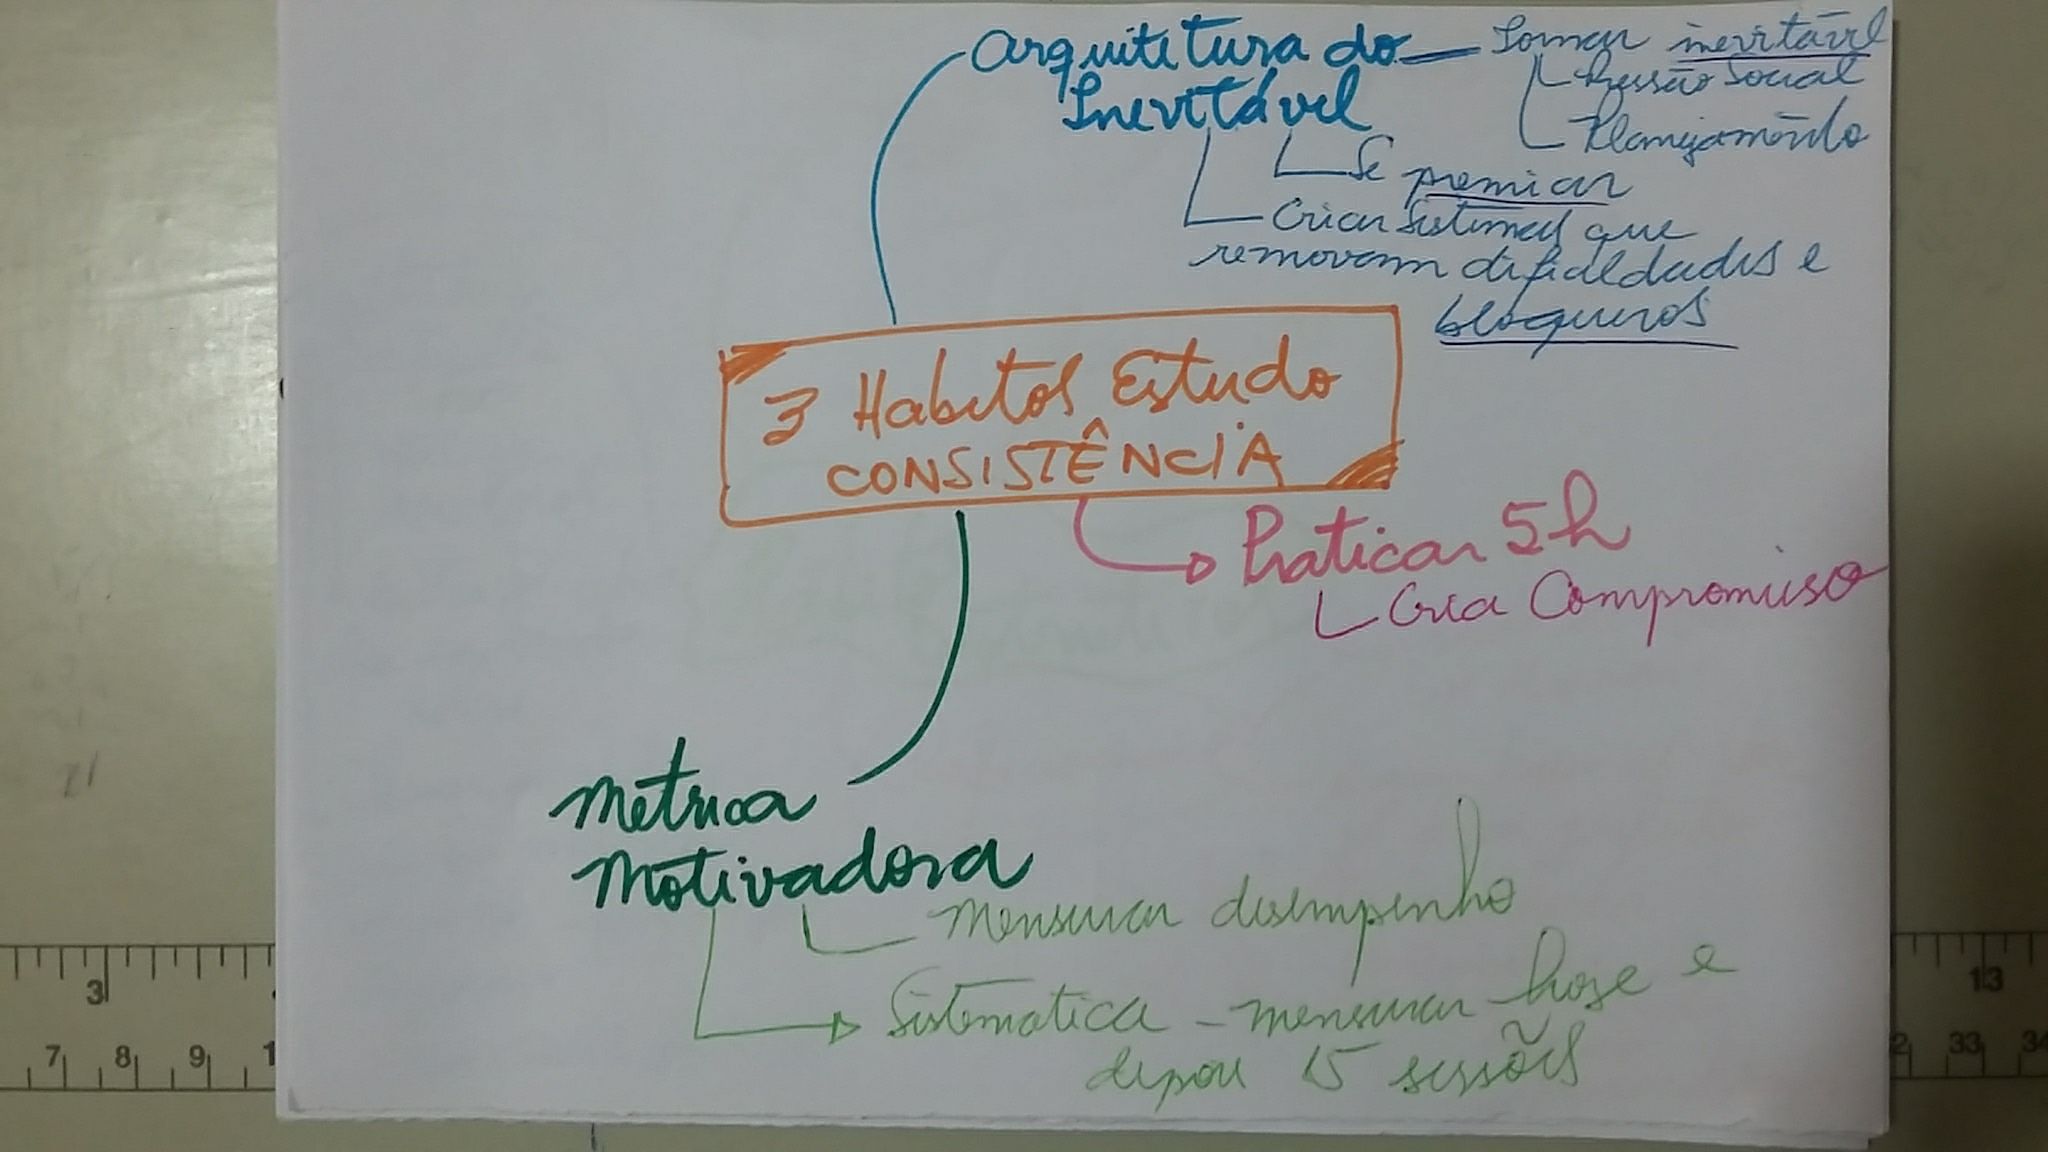 Arquitetura do
Inevitável
Tornar inevitável
Pressão Social
Planejamento
Se premiar
Criar Sistemas que
removam dificuldades e
bloqueios
3 Habitos Estudo
CONSISTÊNCIA
Praticar 5h
Cria Compromisso
Métrica
Motivadora
Mensurar desempenho
Sistematica - mensurar hoje e
depois 15 sessões
3
13
7
8
9
33
34